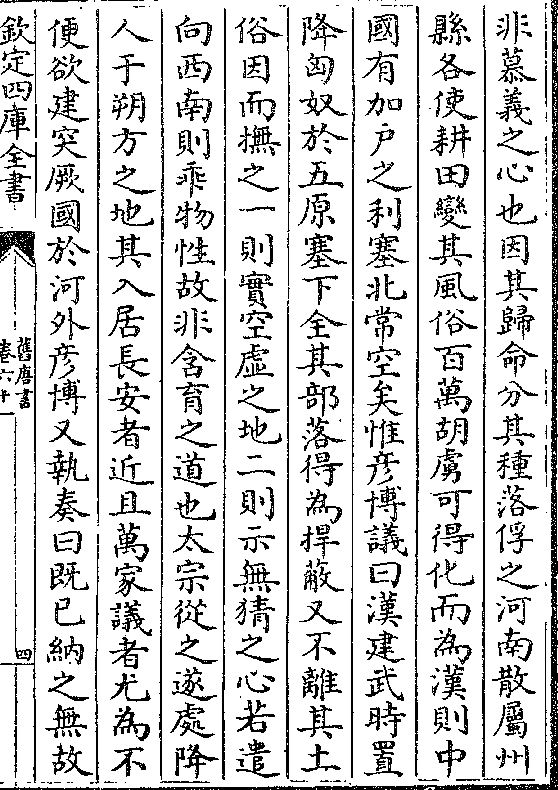 非慕義之心也因其歸命分其種落俘之河南散屬州
縣各使耕田變其風俗百萬胡虜可得化而為漢則中
國有加户之利塞北常空矣惟彦博議曰漢建武時置
降匈奴於五原塞下全其部落得為捍蔽又不離其土
俗因而撫之一則實空虛之地二則示無猜之心若遣
向西南則乖物性故非含育之道也太宗從之遂處降
人于朔方之地其入居長安者近且萬家議者尤為不
便欲建突厥國於河外彦博又執奏曰既已納之無故
欽定四庫全書
舊唐書
卷六十
四